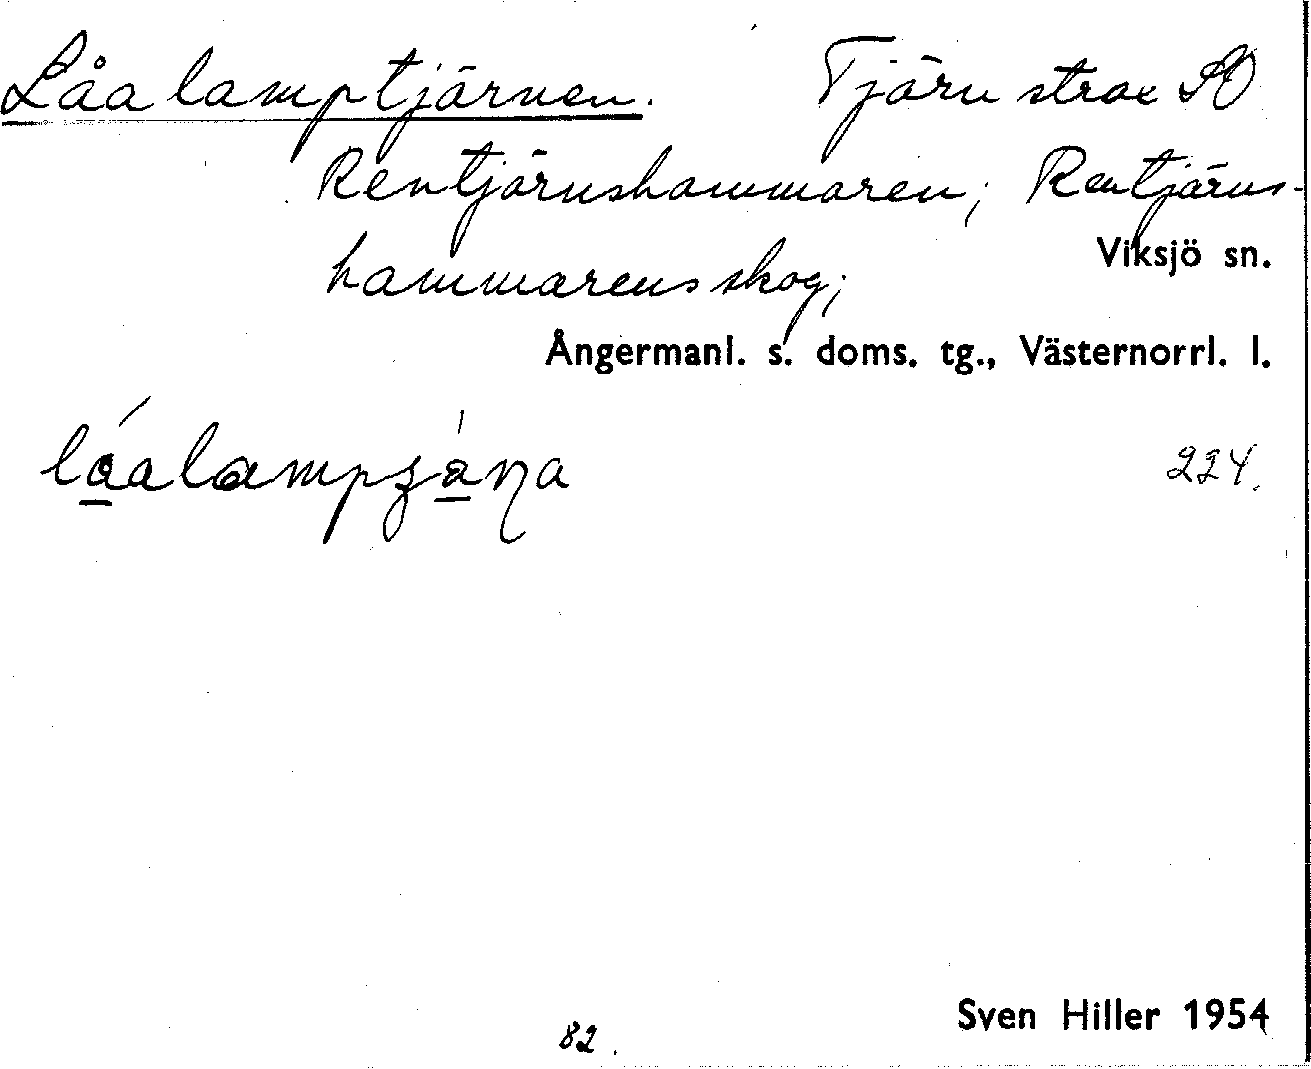 Låalamptjärnen. Tjärn strax SO
Rentjärnshammaren; Rentjärns-
Viksjö sn.
hammarens skog;
Ångermanl. s. doms. tg., Västernorrl. l.
224.
Sven Hiller 1954
82.